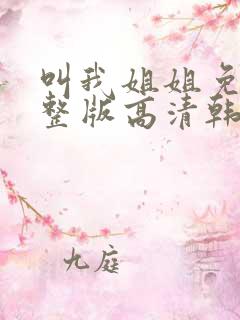 叫我姐姐免
整版高清韩
九庭